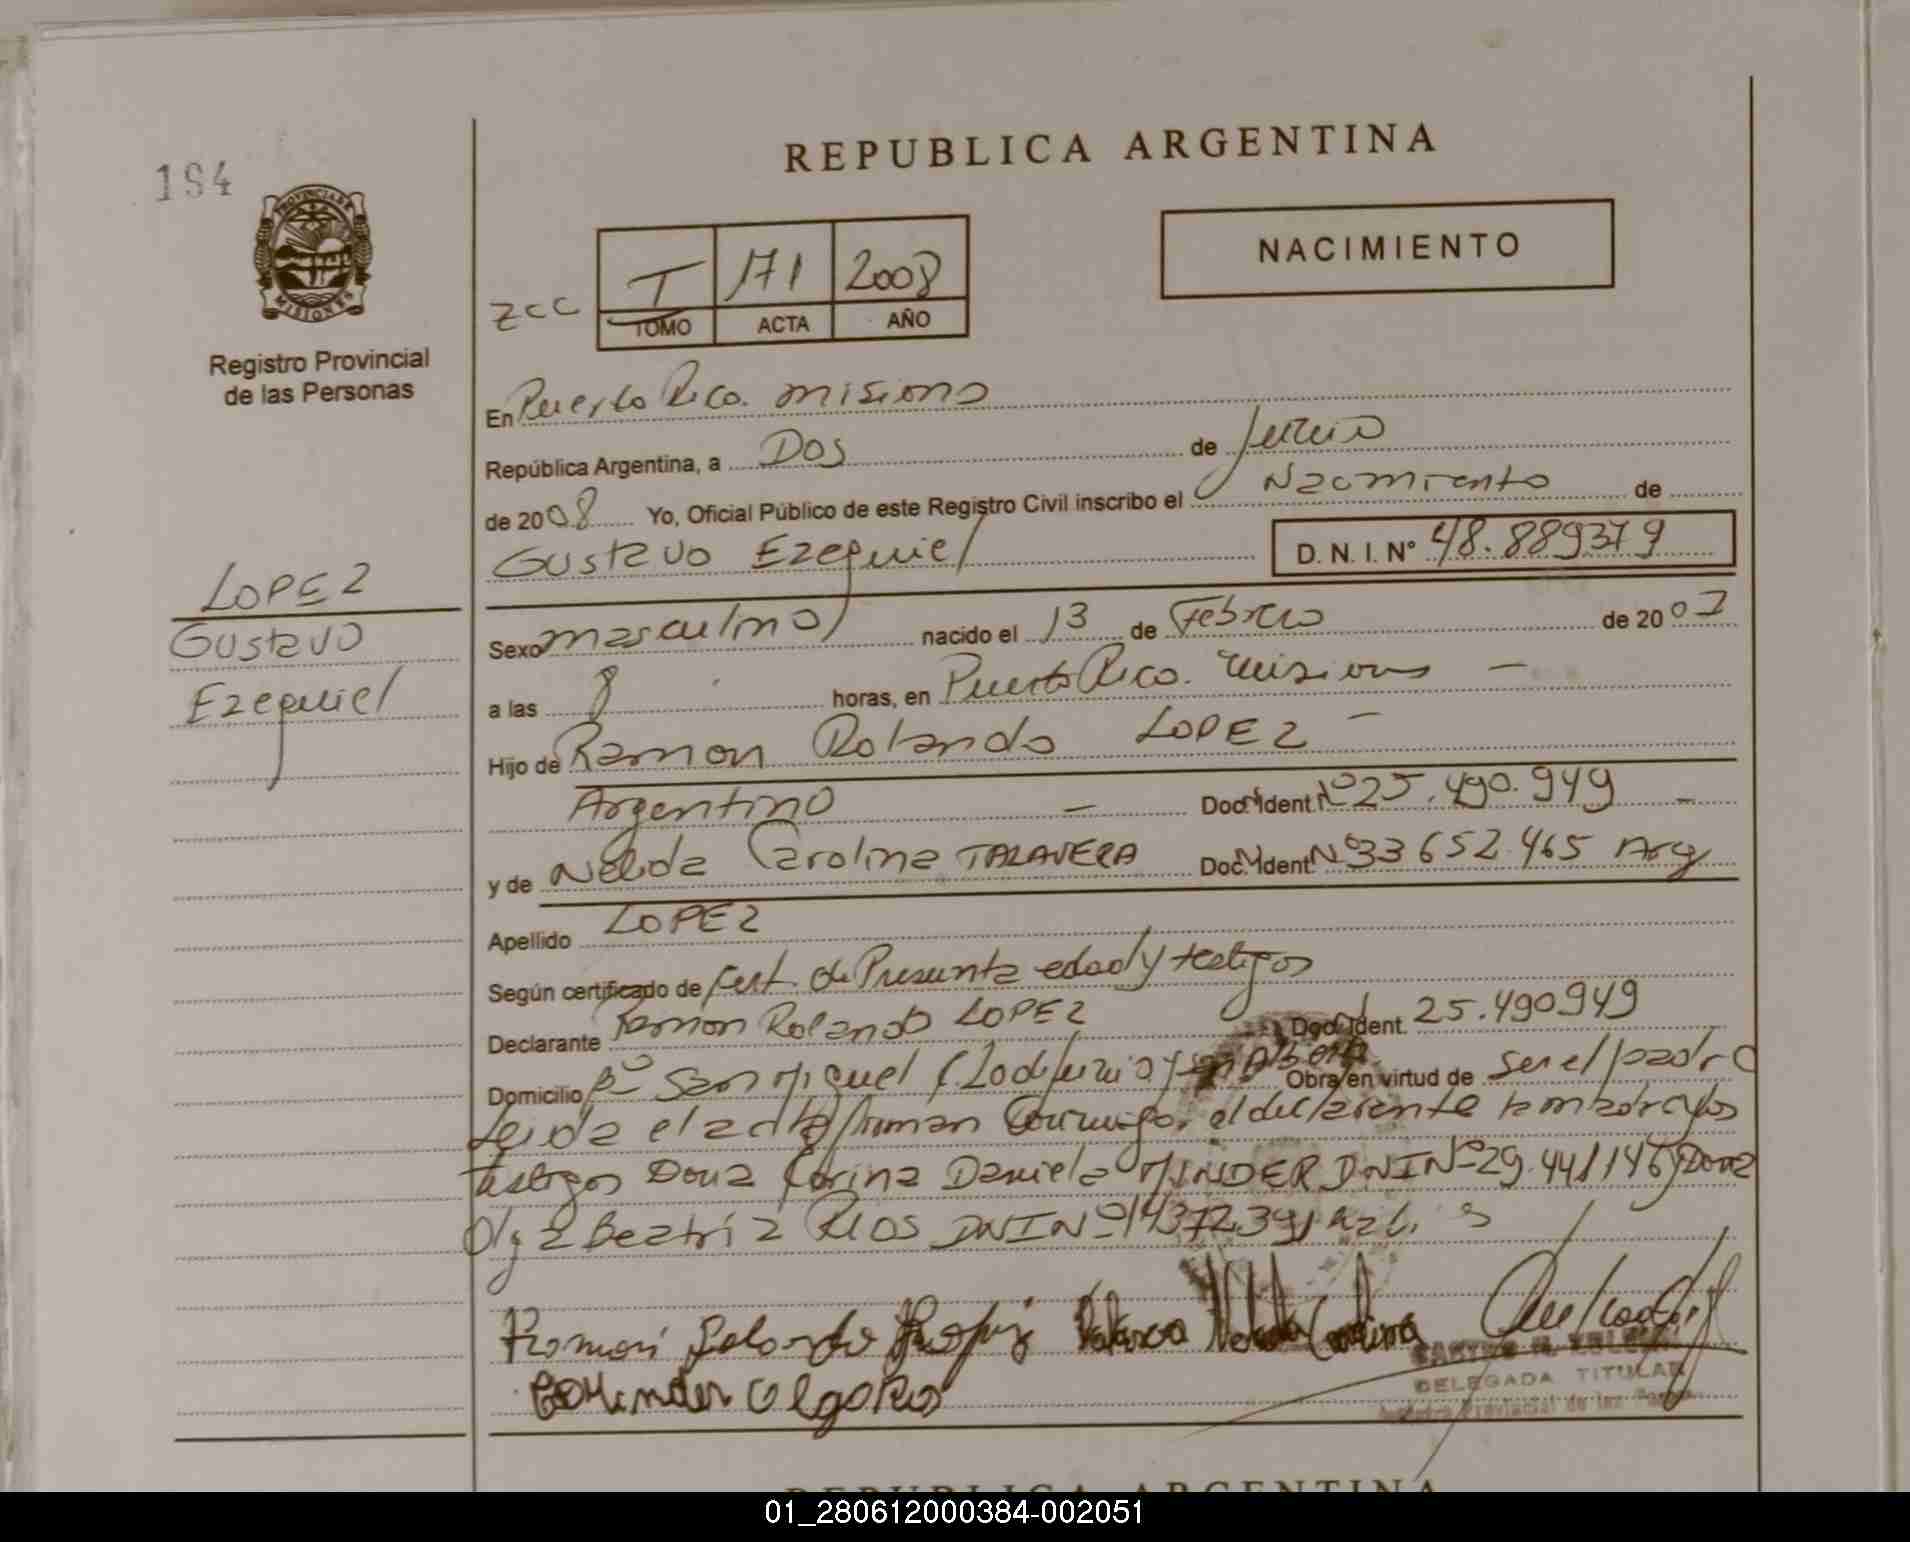 REPUBLICA ARGENTINA
194
PROVINCIA DE
MISIONES
Registro Provincial
de las Personas
NACIMIENTO
zcc
T 171 2008
TOMO ACTA AÑO
En Puerto Rico. misiones
República Argentina, a Dos de Junio
de 2008 Yo, Oficial Público de este Registro Civil inscribo el Nacimiento de
Gustavo Ezequiel D. N. I. N° 48.889379
LOPEZ
Gustavo
Ezequiel
Sexo masculino nacido el 13 de Febrero de 2007
a las 8 horas, en Puerto Rico. misiones —
Hijo de Ramon Rolando LOPEZ —
Argentino — Doc. Ident. N° 25.490.949 —
y de Nelida Carolina TALAVERA Doc. Ident. N° 33652.465 Arg
Apellido LOPEZ
Según certificado de Cert. de Presunta edad y testigos
Declarante Ramon Rolando LOPEZ Doc. Ident. 25.490949
Domicilio B° San Miguel Obra en virtud de ser el padre
Leida el acta firman conmigo, el declarante la madre y los
testigos Doña Corina Daniela MINDER DNI N° 29.441146 y Doña
Olga Beatriz RIOS DNI N° 14372391
Ramon Rolando Lopez Talavera Nelida Carolina
Minder Olga Rios
DELEGADA TITULAR
Registro Provincial de las Personas
REPUBLICA ARGENTINA
01_280612000384-002051